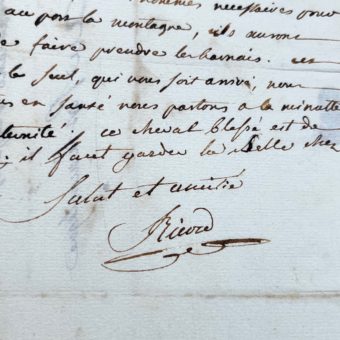 hommes necessaires pour
au pors la montagne, ils auront
de faire prendre le harnais. ces
le seul, qui vous soit arrivé, nous
en santé nous partons a la minutte
ce cheval Blessé est de
il faut garder la selle chez
Salut et amitié
Ricord